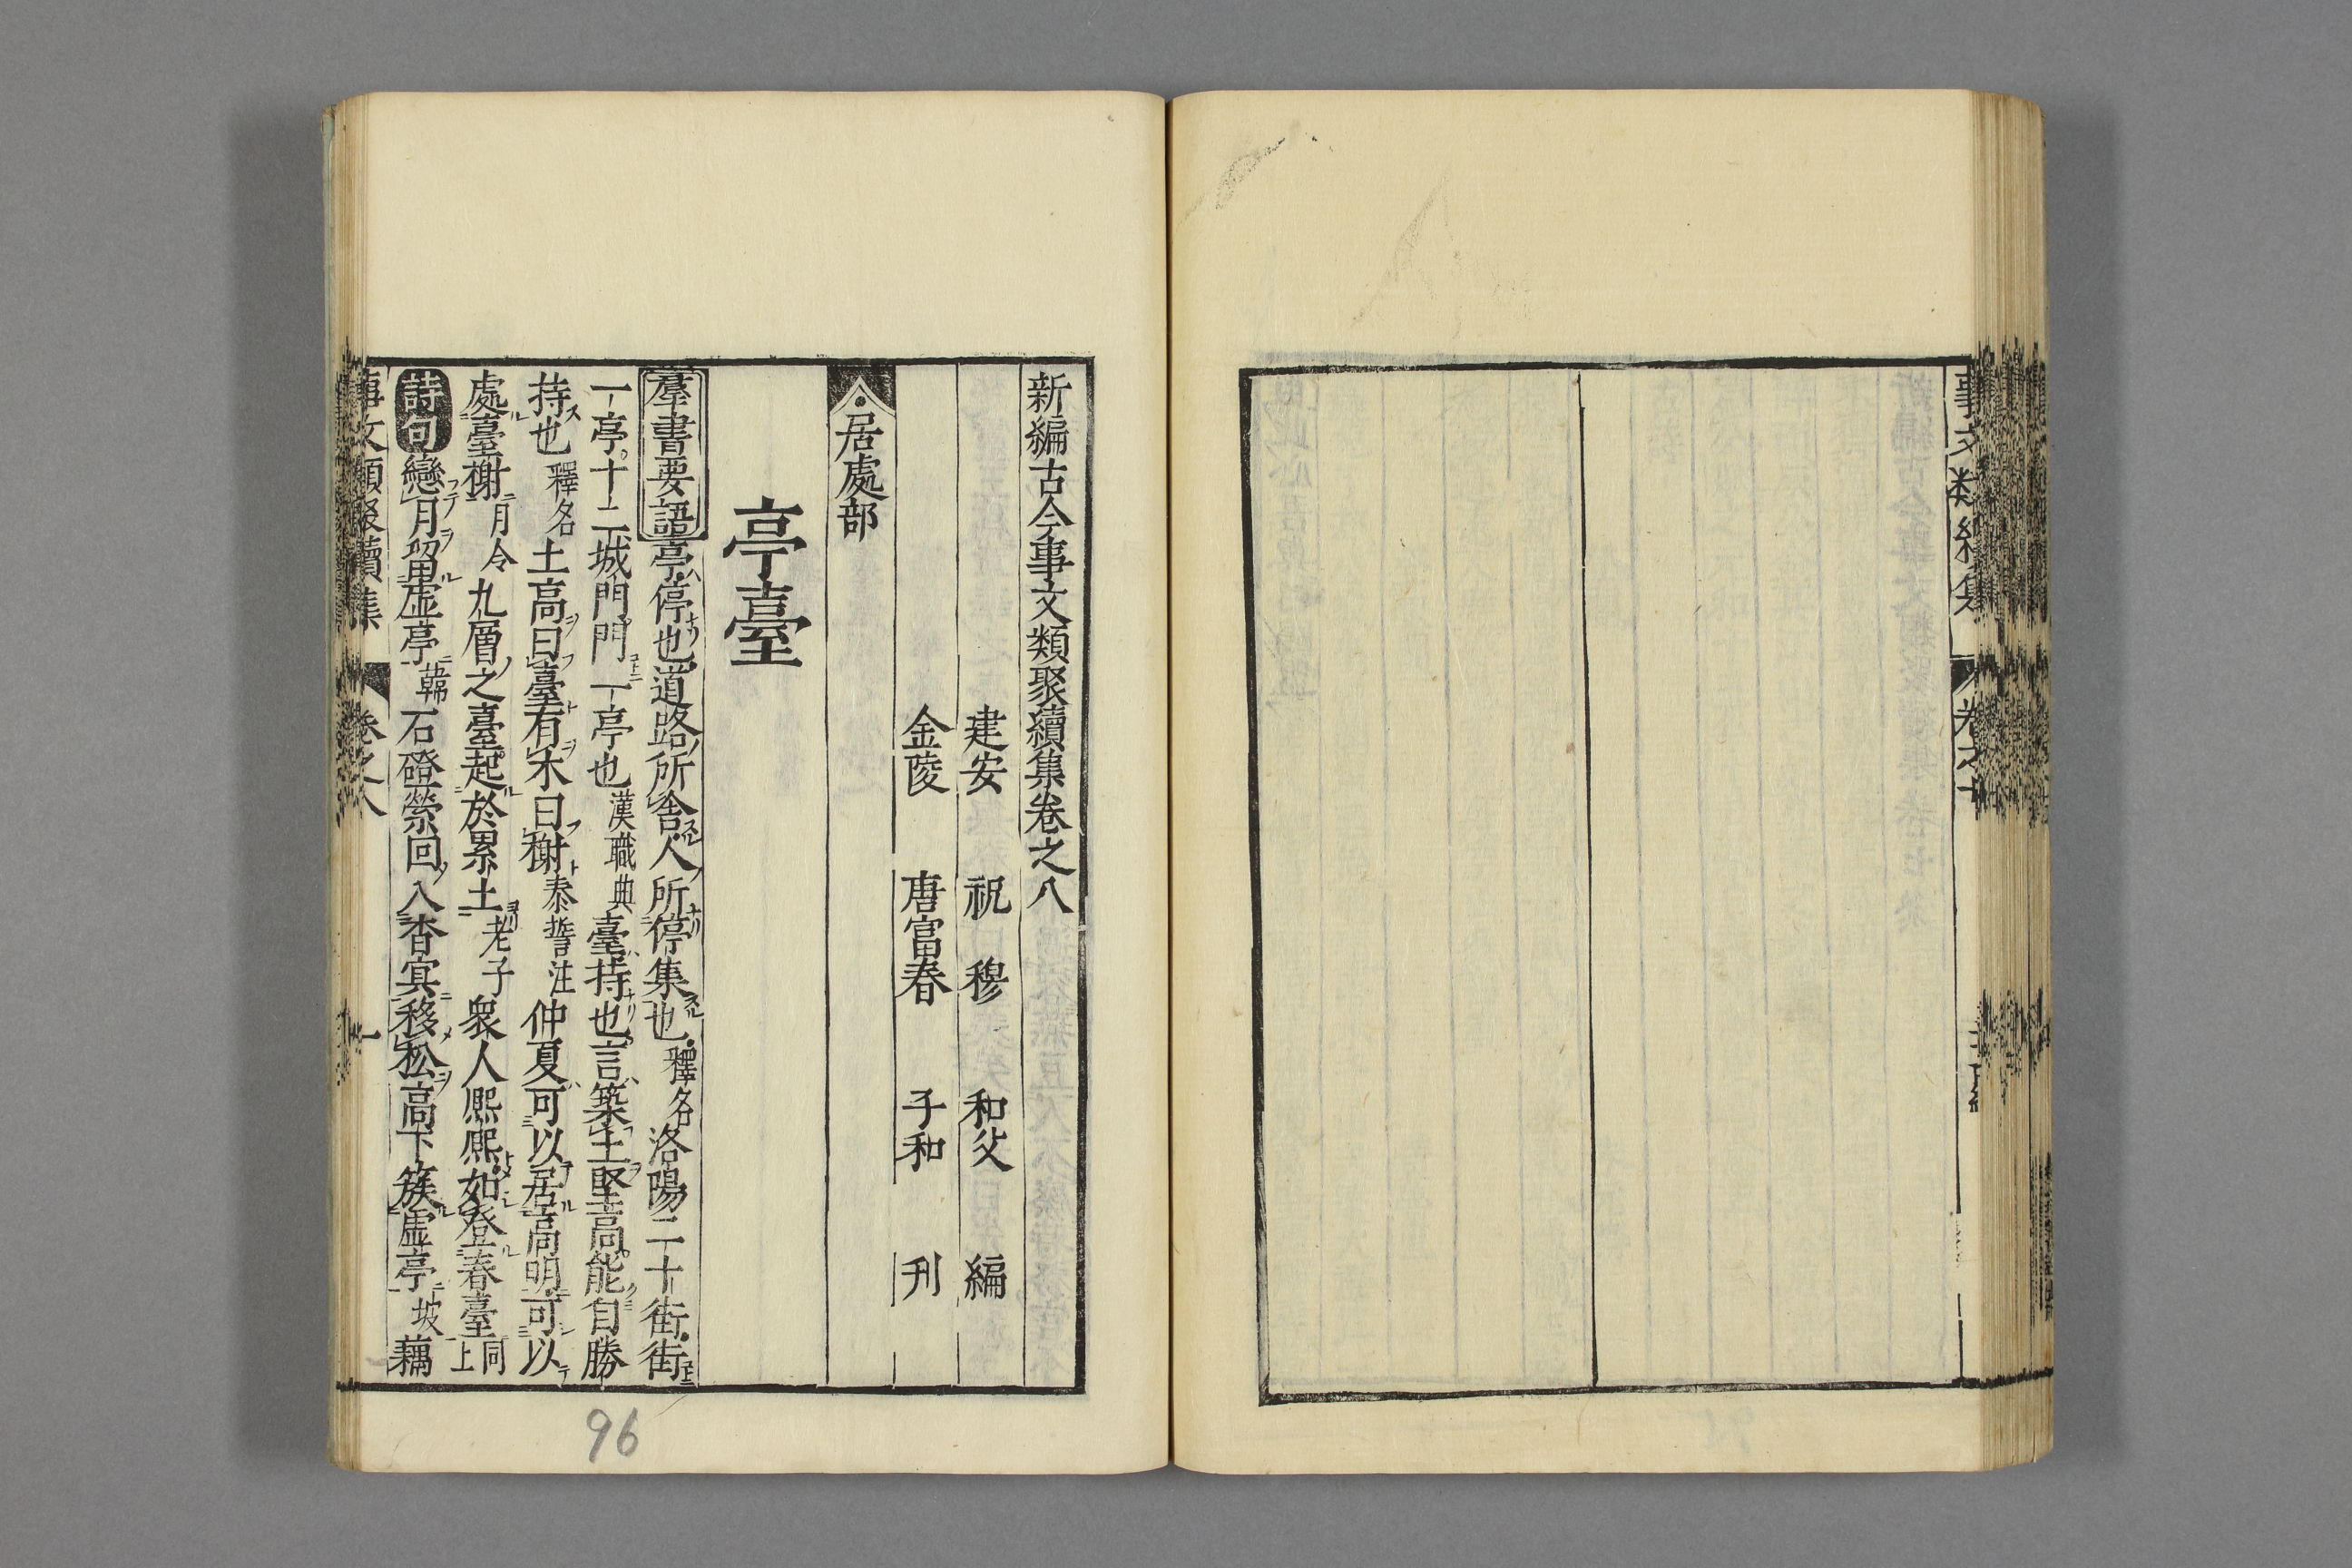 新編古今事文類聚續集卷之八
建安 祝 穆 和父 編
金陵 唐富春 子和 刊
居處部
亭臺
羣書要語亭停也道路所舍人所停集也釋名洛陽二十街街
一亭十二城門門一亭也漢職典臺持也言築土堅高能自勝
持也釋名土高曰臺有木曰榭泰誓注仲夏可以居高明可以
處臺榭月令九層之臺起於累土老子衆人熈熈如登春臺同上
詩句戀月留虛亭韓石磴縈回入杳冥移松高下簇虛亭坡藕
事文類聚續集 卷之八 一
96